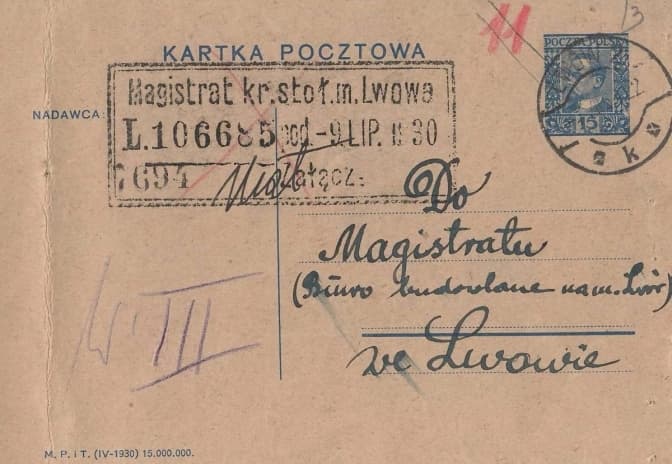 11
3
POCZTA POLSKA
15
KARTKA POCZTOWA
NADAWCA:
Magistrat kr.stoł.m.Lwowa
L.106685 pod. -9.LIP.
7694 Załącz:
Do
Magistratu
(Biuro budowlane na m. Lwów)
we Lwowie
W III
M. P. i T. (IV-1930) 15.000.000.